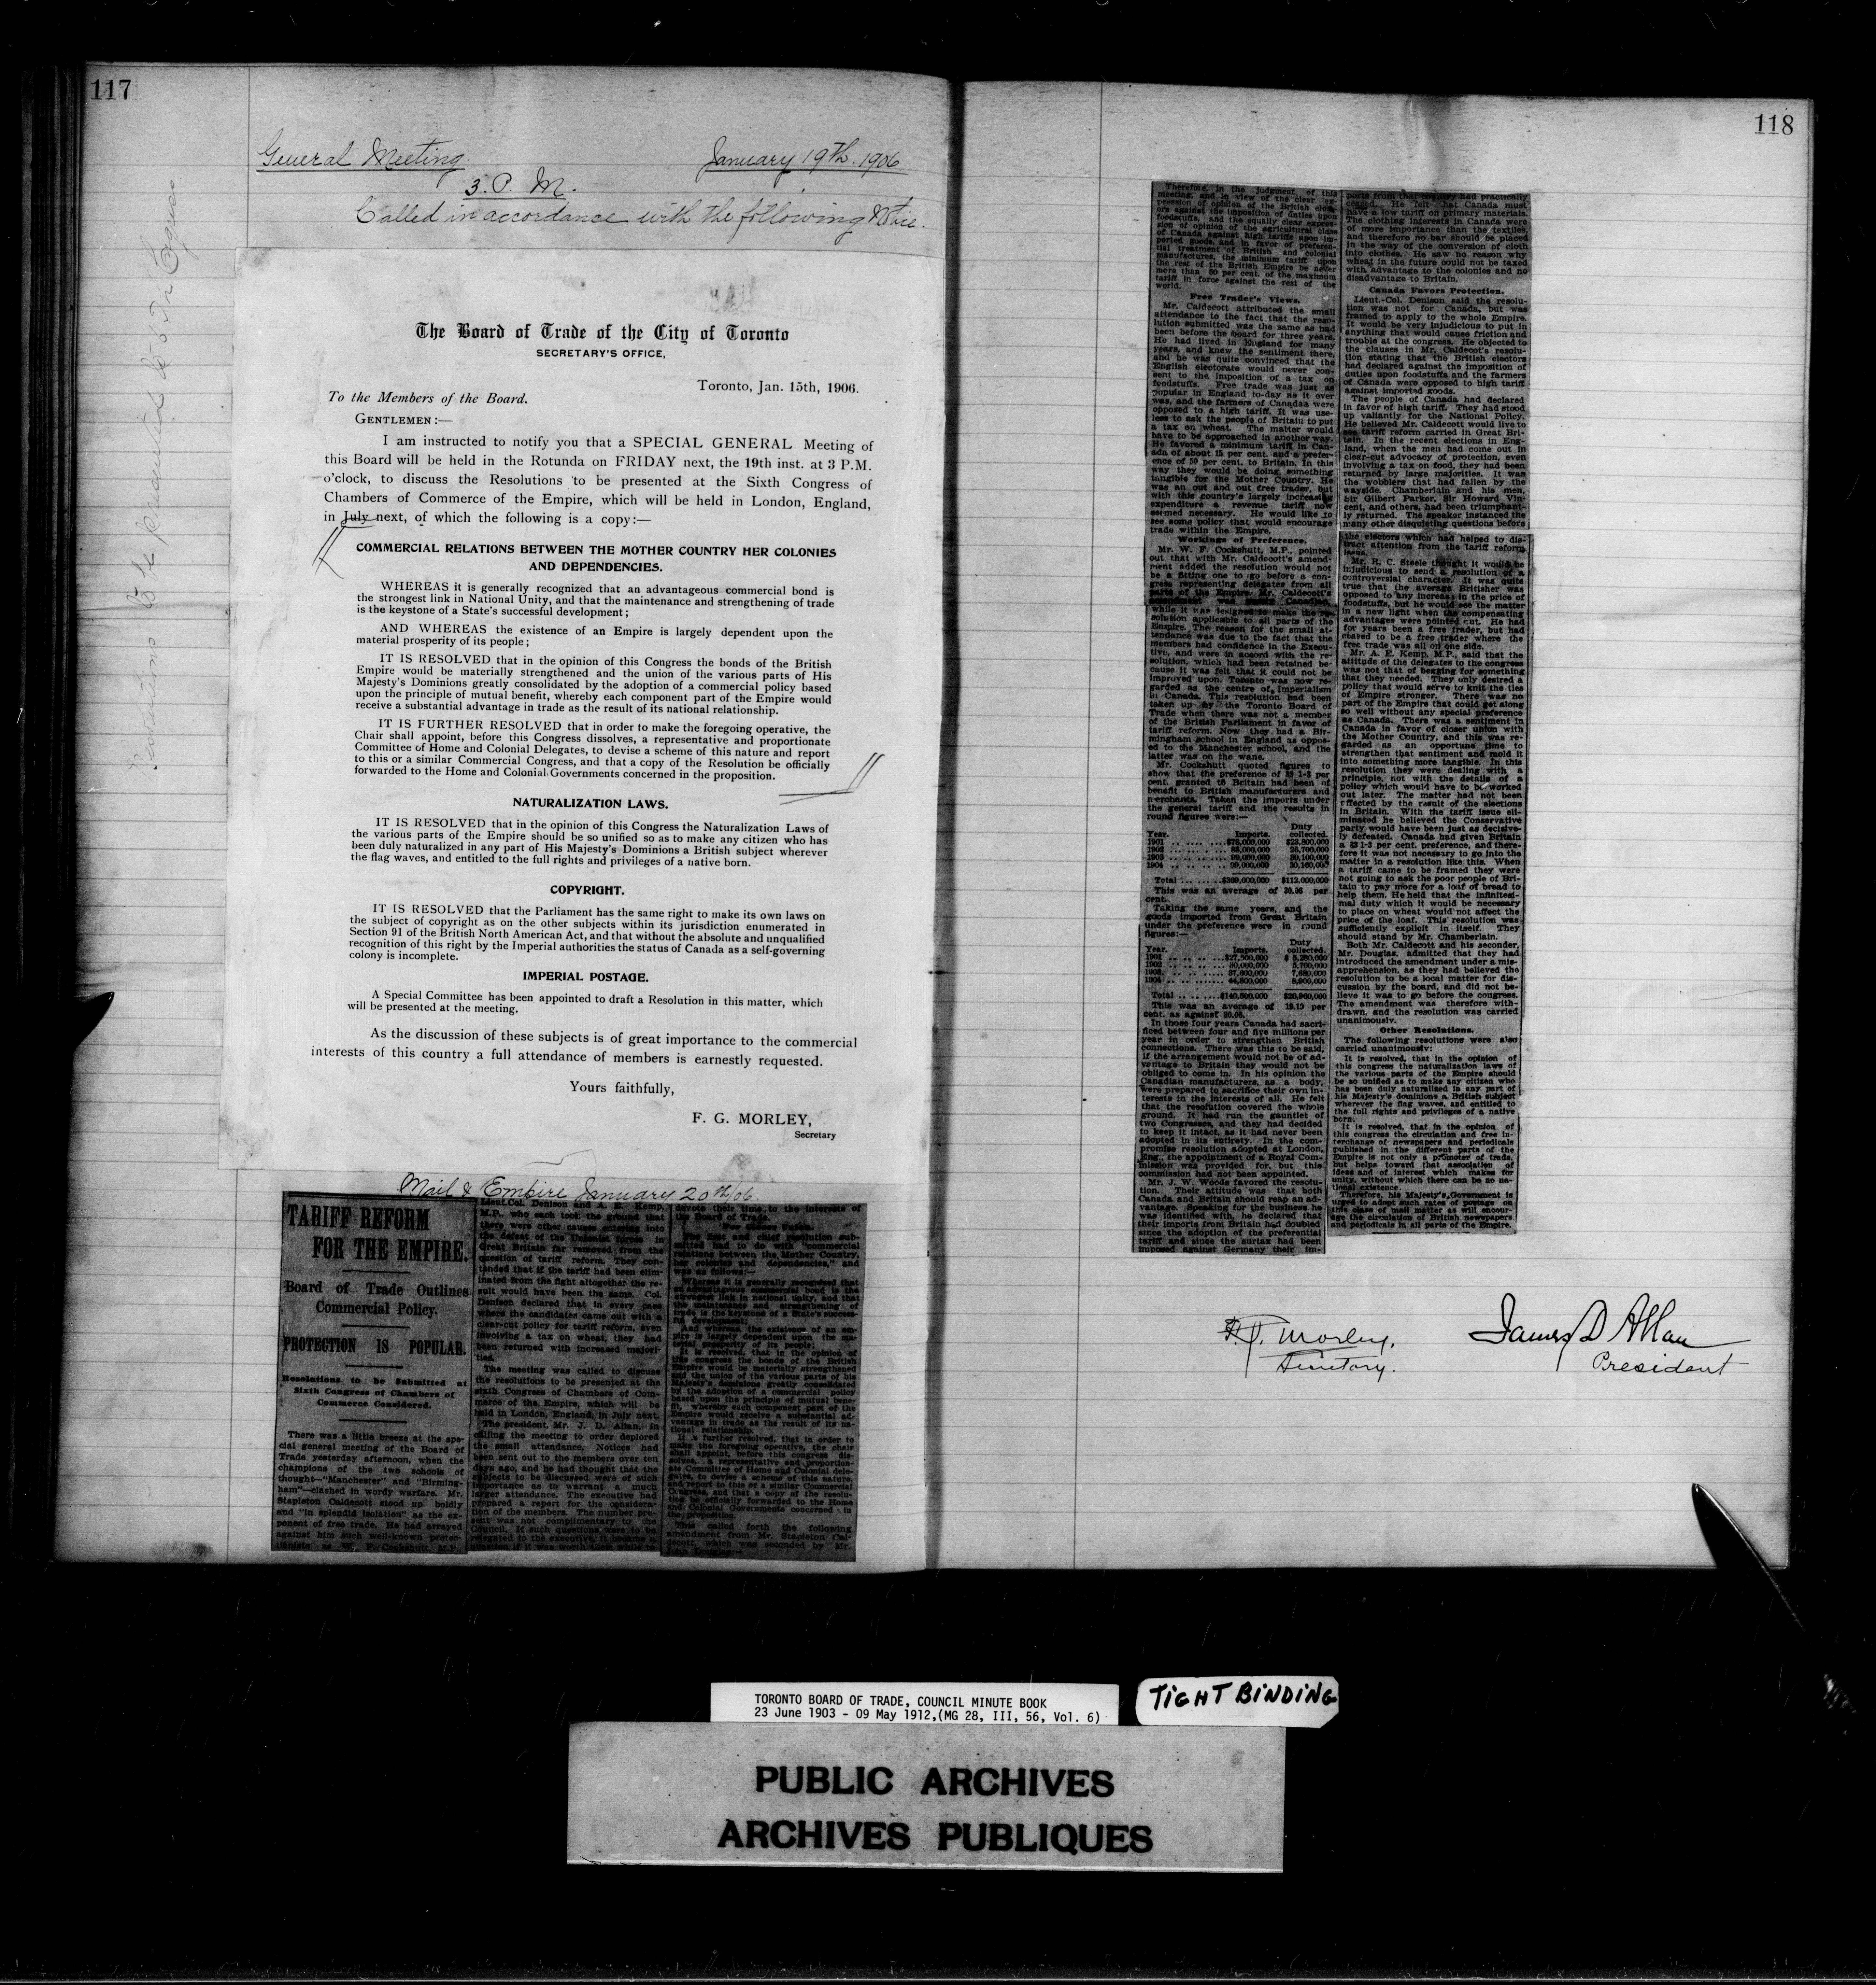 117
General Meeting. January 19th. 1906
3. P. M.
Called in accordance with the following Notice.
Resolutions to be presented to 6th Congress
The Board of Trade of the City of Toronto
SECRETARY'S OFFICE,
Toronto, Jan. 15th, 1906.
To the Members of the Board.
GENTLEMEN:—
I am instructed to notify you that a SPECIAL GENERAL Meeting of
this Board will be held in the Rotunda on FRIDAY next, the 19th inst. at 3 P.M.
o'clock, to discuss the Resolutions to be presented at the Sixth Congress of
Chambers of Commerce of the Empire, which will be held in London, England,
in July next, of which the following is a copy:—
COMMERCIAL RELATIONS BETWEEN THE MOTHER COUNTRY HER COLONIES
AND DEPENDENCIES.
WHEREAS it is generally recognized that an advantageous commercial bond is
the strongest link in National Unity, and that the maintenance and strengthening of trade
is the keystone of a State's successful development;
AND WHEREAS the existence of an Empire is largely dependent upon the
material prosperity of its people;
IT IS RESOLVED that in the opinion of this Congress the bonds of the British
Empire would be materially strengthened and the union of the various parts of His
Majesty's Dominions greatly consolidated by the adoption of a commercial policy based
upon the principle of mutual benefit, whereby each component part of the Empire would
receive a substantial advantage in trade as the result of its national relationship.
IT IS FURTHER RESOLVED that in order to make the foregoing operative, the
Chair shall appoint, before this Congress dissolves, a representative and proportionate
Committee of Home and Colonial Delegates, to devise a scheme of this nature and report
to this or a similar Commercial Congress, and that a copy of the Resolution be officially
forwarded to the Home and Colonial Governments concerned in the proposition.
NATURALIZATION LAWS.
IT IS RESOLVED that in the opinion of this Congress the Naturalization Laws of
the various parts of the Empire should be so unified so as to make any citizen who has
been duly naturalized in any part of His Majesty's Dominions a British subject wherever
the flag waves, and entitled to the full rights and privileges of a native born.
COPYRIGHT.
IT IS RESOLVED that the Parliament has the same right to make its own laws on
the subject of copyright as on the other subjects within its jurisdiction enumerated in
Section 91 of the British North American Act, and that without the absolute and unqualified
recognition of this right by the Imperial authorities the status of Canada as a self-governing
colony is incomplete.
IMPERIAL POSTAGE.
A Special Committee has been appointed to draft a Resolution in this matter, which
will be presented at the meeting.
As the discussion of these subjects is of great importance to the commercial
interests of this country a full attendance of members is earnestly requested.
Yours faithfully,
F. G. MORLEY,
Secretary
Mail & Empire January 20th/06.
TARIFF REFORM
FOR THE EMPIRE.
Board of Trade Outlines
Commercial Policy.
PROTECTION IS POPULAR.
Resolutions to be Submitted at
Sixth Congress of Chambers of
Commerce Considered.
There was a little breeze at the spe-
cial general meeting of the Board of
Trade yesterday afternoon, when the
champions of the two schools of
thought—"Manchester" and "Birming-
ham"—clashed in wordy warfare. Mr.
Stapleton Caldecott stood up boldly
and "in splendid isolation" as the ex-
ponent of free trade. He had arrayed
against him such well-known protec-
tionists as W. F. Cockshutt, M.P.,
Lieut.Col. Denison and A. E. Kemp,
M.P., who each took the ground that
there were other causes entering into
the defeat of the Unionist forces in
Great Britain far removed from the
question of tariff reform. They con-
tended that if the tariff had been elim-
inated from the fight altogether the re-
sult would have been the same. Col.
Denison declared that in every case
where the candidates came out with a
clear-cut policy for tariff reform, even
involving a tax on wheat, they had
been returned with increased majori-
ties.
The meeting was called to discuss
the resolutions to be presented at the
sixth Congress of Chambers of Com-
merce of the Empire, which will be
held in London, England, in July next.
The president, Mr. J. D. Allan, in
calling the meeting to order deplored
the small attendance. Notices had
been sent out to the members over ten
days ago, and he had thought that the
subjects to be discussed were of such
importance as to warrant a much
larger attendance. The executive had
prepared a report for the considera-
tion of the members. The number pre-
sent was not complimentary to the
Council. If such questions were to be
relegated to the executive, it became a
question if it was worth their while to
devote their time to the interests of
the Board of Trade.
For Closer Union.
The first and chief resolution sub-
mitted had to do with "commercial
relations between the Mother Country,
her colonies and dependencies," and
was as follows:—
Whereas it is generally recognised that
an advantageous commercial bond is the
strongest link in national unity, and that
the maintenance and strengthening of
trade is the keystone of a State's success-
ful development;
And whereas, the existence of an em-
pire is largely dependent upon the ma-
terial prosperity of its people;
It is resolved, that in the opinion of
this congress the bonds of the British
Empire would be materially strengthened
and the union of the various parts of his
Majesty's dominions greatly consolidated
by the adoption of a commercial policy
based upon the principle of mutual bene-
fit, whereby each component part of the
Empire would receive a substantial ad-
vantage in trade as the result of its na-
tional relationship.
It is further resolved, that in order to
make the foregoing operative, the chair
shall appoint, before this congress dis-
solves, a representative and proportion-
ate Committee of Home and Colonial dele-
gates, to devise a scheme of this nature,
and report to this or a similar Commercial
Congress, and that a copy of the resolu-
tion be officially forwarded to the Home
and Colonial Governments concerned in
the proposition.
This called forth the following
amendment from Mr. Stapleton Cal-
decott, which was seconded by Mr.
John Douglas:—
118
Therefore, in the judgment of this
meeting, and in view of the clear ex-
pression of opinion of the British elect-
ors against the imposition of duties upon
foodstuffs, and the equally clear expres-
sion of opinion of the agricultural class
of Canada against high tariffs upon im-
ported goods, and in favor of preferen-
tial treatment of British and colonial
manufactures, the minimum tariff upon
the rest of the British Empire be never
more than 50 per cent. of the maximum
tariff in force against the rest of the
world.
Free Trader's Views.
Mr. Caldecott attributed the small
attendance to the fact that the reso-
lution submitted was the same as had
been before the board for three years.
He had lived in England for many
years, and knew the sentiment there,
and he was quite convinced that the
English electorate would never con-
sent to the imposition of a tax on
foodstuffs. Free trade was just as
popular in England to-day as it ever
was, and the farmers of Canadaa were
opposed to a high tariff. It was use-
less to ask the people of Britain to put
a tax on wheat. The matter would
have to be approached in another way.
He favored a minimum tariff in Can-
ada of about 15 per cent. and a prefer-
ence of 50 per cent. to Britain. In this
way they would be doing something
tangible for the Mother Country. He
was an out and out free trader, but
with this country's largely increasing
expenditure a revenue tariff now
seemed necessary. He would like to
see some policy that would encourage
trade within the Empire.
Workings of Preference.
Mr. W. F. Cockshutt, M.P., pointed
out that with Mr. Caldecott's amend-
ment added the resolution would not
be a fitting one to go before a con-
gress representing delegates from all
parts of the Empire. Mr. Caldecott's
amendment was purely Canadian,
while it was designed to make the re-
solution applicable to all parts of the
Empire. The reason for the small at-
tendance was due to the fact that the
members had confidence in the Execu-
tive, and were in accord with the re-
solution, which had been retained be-
cause it was felt that it could not be
improved upon. Toronto was now re-
garded as the centre of Imperialism
in Canada. This resolution had been
taken up by the Toronto Board of
Trade when there was not a member
of the British Parliament in favor of
tariff reform. Now they had a Bir-
mingham school in England as oppos-
ed to the Manchester school, and the
latter was on the wane.
Mr. Cockshutt quoted figures to
show that the preference of 33 1-3 per
cent. granted to Britain had been of
benefit to British manufacturers and
merchants. Taken the imports under
the general tariff and the results in
round figures were:—
Duty
Year. Imports. collected.
1901 $78,000,000 $23,800,000
1902 88,000,000 26,700,000
1903 99,000,000 30,100,000
1904 99,000,000 30,160,000
Total $369,000,000 $112,000,000
This was an average of 30.06 per
cent.
Taking the same years, and the
goods imported from Great Britain
under the preference were in round
figures:—
Duty
Year. Imports. collected.
1901 $27,500,000 $ 5,280,000
1902 30,000,000 5,700,000
1903 37,000,000 7,080,000
1904 44,800,000 8,900,000
Total $140,500,000 $26,960,000
This was an average of 19.19 per
cent. as against 30.06.
In those four years Canada had sacri-
ficed between four and five millions per
year in order to strengthen British
connections. There was this to be said,
if the arrangement would not be of ad-
vantage to Britain they would not be
obliged to come in. In his opinion the
Canadian manufacturers, as a body,
were prepared to sacrifice their own in-
terests in the interests of all. He felt
that the resolution covered the whole
ground. It had run the gauntlet of
two Congresses, and they had decided
to keep it intact, as it had never been
adopted in its entirety. In the com-
promise resolution adopted at London,
Eng., the appointment of a Royal Com-
mission was provided for, but this
commission had not been appointed.
Mr. J. W. Woods favored the resolu-
tion. Their attitude was that both
Canada and Britain should reap an ad-
vantage. Speaking for the business he
was identified with, he declared that
their imports from Britain had doubled
since the adoption of the preferential
tariff and since the surtax had been
imposed against Germany their im-
ports from that country had practically
ceased. He felt that Canada must
have a low tariff on primary materials.
The clothing interests in Canada were
of more importance than the textiles,
and therefore no bar should be placed
in the way of the conversion of cloth
into clothes. He saw no reason why
wheat in the future could not be taxed
with advantage to the colonies and no
disadvantage to Britain.
Canada Favors Protection.
Lieut.-Col. Denison said the resolu-
tion was not for Canada, but was
framed to apply to the whole Empire.
It would be very injudicious to put in
anything that would cause friction and
trouble at the congress. He objected to
the clauses in Mr. Caldecot's resolu-
tion stating that the British electors
had declared against the imposition of
duties upon foodstuffs and the farmers
of Canada were opposed to high tariff
against imported goods.
The people of Canada had declared
in favor of high tariff. They had stood
up valiantly for the National Policy.
He believed Mr. Caldecott would live to
see tariff reform carried in Great Bri-
tain. In the recent elections in Eng-
land, when the men had come out in
clear-cut advocacy of protection, even
involving a tax on food, they had been
returned by large majorities. It was
the wobblers that had fallen by the
wayside. Chamberlain and his men,
Sir Gilbert Parker, Sir Howard Vin-
cent, and others, had been triumphant-
ly returned. The speaker instanced the
many other disquieting questions before
the electors which had helped to dis-
tract attention from the tariff reform
issue.
Mr. R. C. Steele thought it would be
injudicious to send a resolution of a
controversial character. It was quite
true that the average Britisher was
opposed to any increase in the price of
foodstuffs, but he would see the matter
in a new light when the compensating
advantages were pointed out. He had
for years been a free trader, but had
ceased to be a free trader where the
free trade was all on one side.
Mr. A. E. Kemp, M.P., said that the
attitude of the delegates to the congress
was not that of begging for something
that they needed. They only desired a
policy that would serve to knit the ties
of Empire stronger. There was no
part of the Empire that could get along
so well without any special preference
as Canada. There was a sentiment in
Canada in favor of closer union with
the Mother Country, and this was re-
garded as an opportune time to
strengthen that sentiment and mold it
into something more tangible. In this
resolution they were dealing with a
principle, not with the details of a
policy which would have to be worked
out later. The matter had not been
effected by the result of the elections
in Britain. With the tariff issue eli-
minated he believed the Conservative
party would have been just as decisive-
ly defeated. Canada had given Britain
a 33 1-3 per cent. preference, and there-
fore it was not necessary to go into the
matter in a resolution like this. When
a tariff came to be framed they were
not going to ask the poor people of Bri-
tain to pay more for a loaf of bread to
help them. He held that the infinitesi-
mal duty which it would be necessary
to place on wheat would not affect the
price of the loaf. This resolution was
sufficiently explicit in itself. They
should stand by Mr. Chamberlain.
Both Mr. Caldecott and his seconder,
Mr. Douglas, admitted that they had
introduced the amendment under a mis-
apprehension, as they had believed the
resolution to be a local matter for dis-
cussion by the board, and did not be-
lieve it was to go before the congress.
The amendment was therefore with-
drawn, and the resolution was carried
unanimously.
Other Resolutions.
The following resolutions were also
carried unanimously:
It is resolved, that in the opinion of
this congress the naturalization laws of
the various parts of the Empire should
be so unified as to make any citizen who
has been duly naturalized in any part of
his Majesty's dominions a British subject
wherever the flag waves, and entitled to
the full rights and privileges of a native
born.
It is resolved, that in the opinion of
this congress the circulation and free in-
terchange of newspapers and periodicals
published in the different parts of the
Empire is not only a promoter of trade,
but helps toward that association of
ideas and of interest which makes for
unity, without which there can be no na-
tional existence.
Therefore, his Majesty's Government is
urged to adopt such rates of postage on
this class of mail matter as will encour-
age the circulation of British newspapers
and periodicals in all parts of the Empire.
F. G. Morley,
Secretary.
James D Allan
President
TORONTO BOARD OF TRADE, COUNCIL MINUTE BOOK
23 June 1903 - 09 May 1912,(MG 28, III, 56, Vol. 6)
TIGHT BINDING
PUBLIC ARCHIVES
ARCHIVES PUBLIQUES